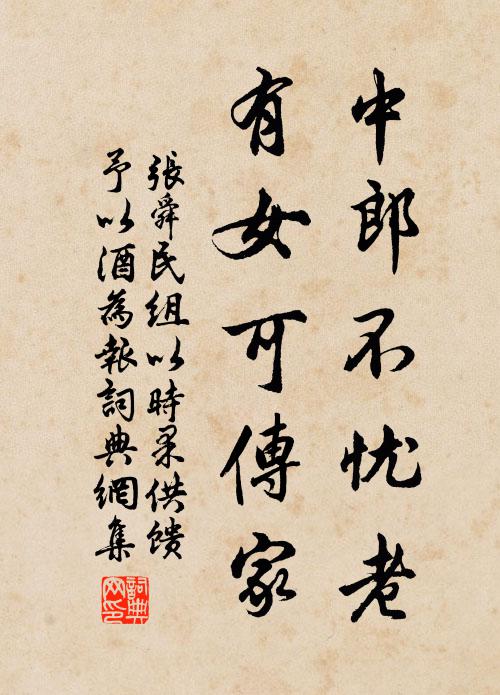 中郎不忧老
有女可傳家
張舜民組以時果供馈
予以酒為報詞典網集
詞典
网印